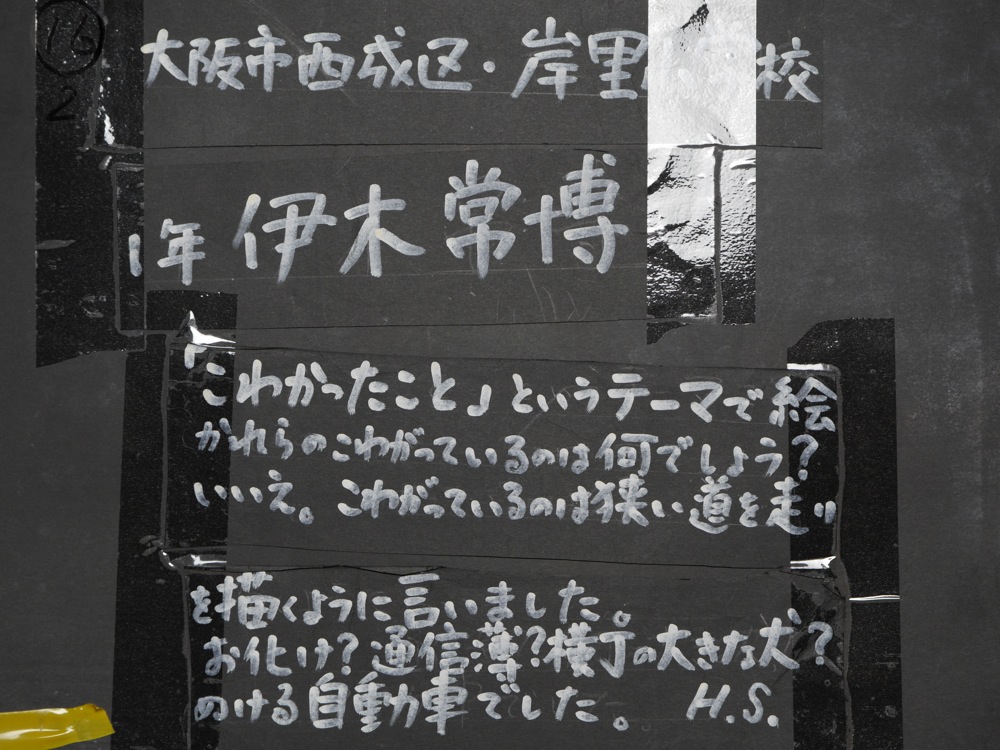 16
2
大阪市西成区・岸里 校
1年 伊木常博
「こわかったこと」というテーマで絵
かれらのこわがっているのは何でしょう?
いいえ。これがっているのは狭い道を走り
を描くように言いました。
お化け?通信薄?横丁の大きな犬?
ぬける自動車でした。 H.S.